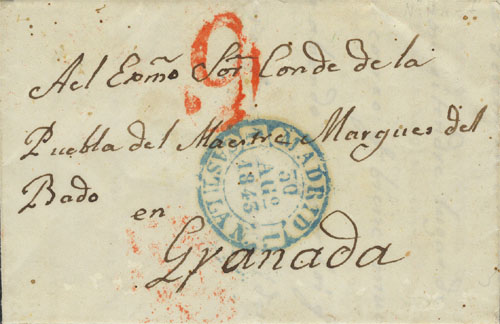 9
Ael Exmo Sor Conde de la
Puebla del Maestre Marques del
Bado
en
Granada
MADRID
30
AGo
1843
CAST. LA N.